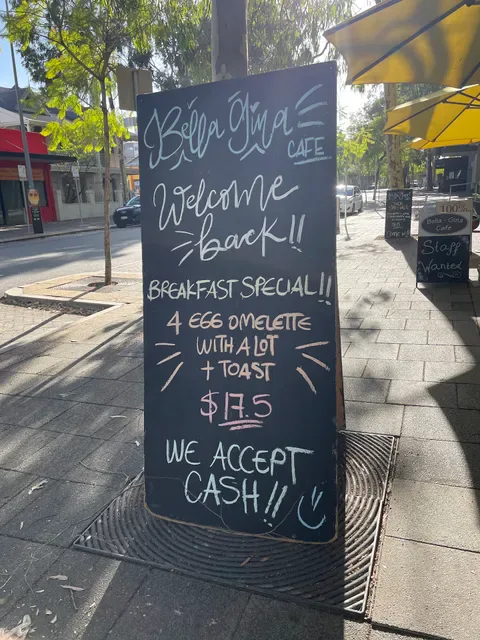 Bella Gina
CAFE
Welcome
back!!
BREAKFAST SPECIAL!!
4 EGG OMELETTE
WITH A LOT
+ TOAST
$17.5
WE ACCEPT
CASH!!
Bella-Gina
Cafe
Staff
Wanted